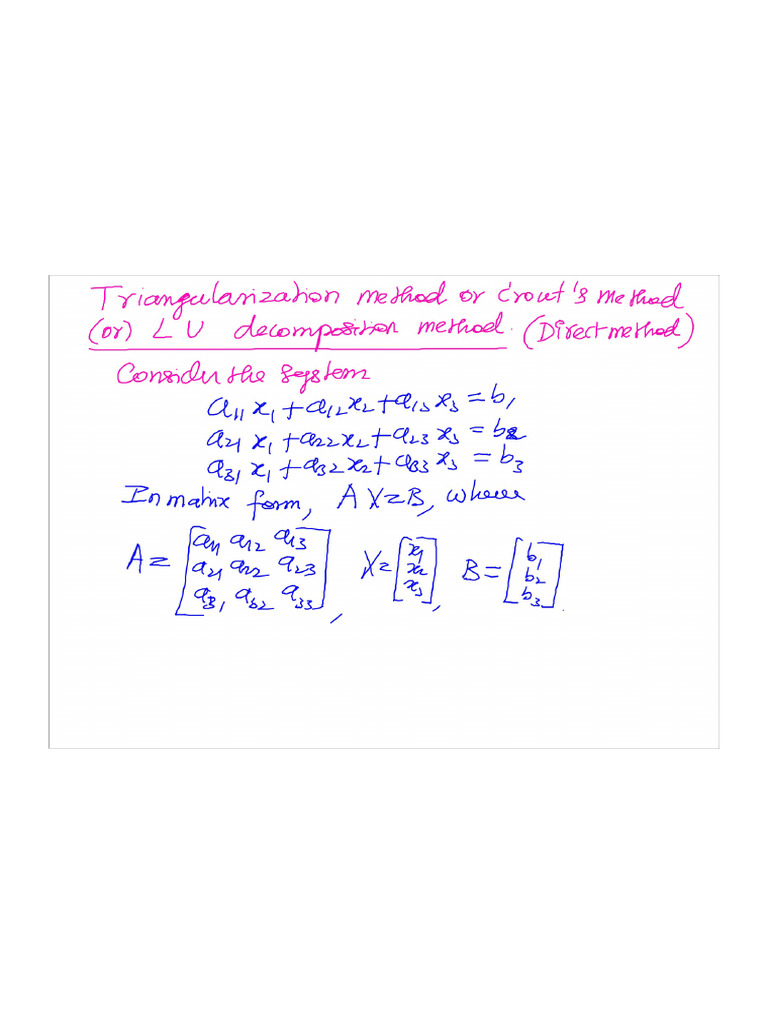 Triangularization method or Crout's Method
(or) L U decomposition method. (Direct method)
Consider the system
a11 x1 + a12 x2 + a13 x3 = b1
a21 x1 + a22 x2 + a23 x3 = b2
a31 x1 + a32 x2 + a33 x3 = b3
In matrix form, A X = B, where
A = [a11 a12 a13
a21 a22 a23
a31 a32 a33], X = [x1 x2 x3], B = [b1 b2 b3].